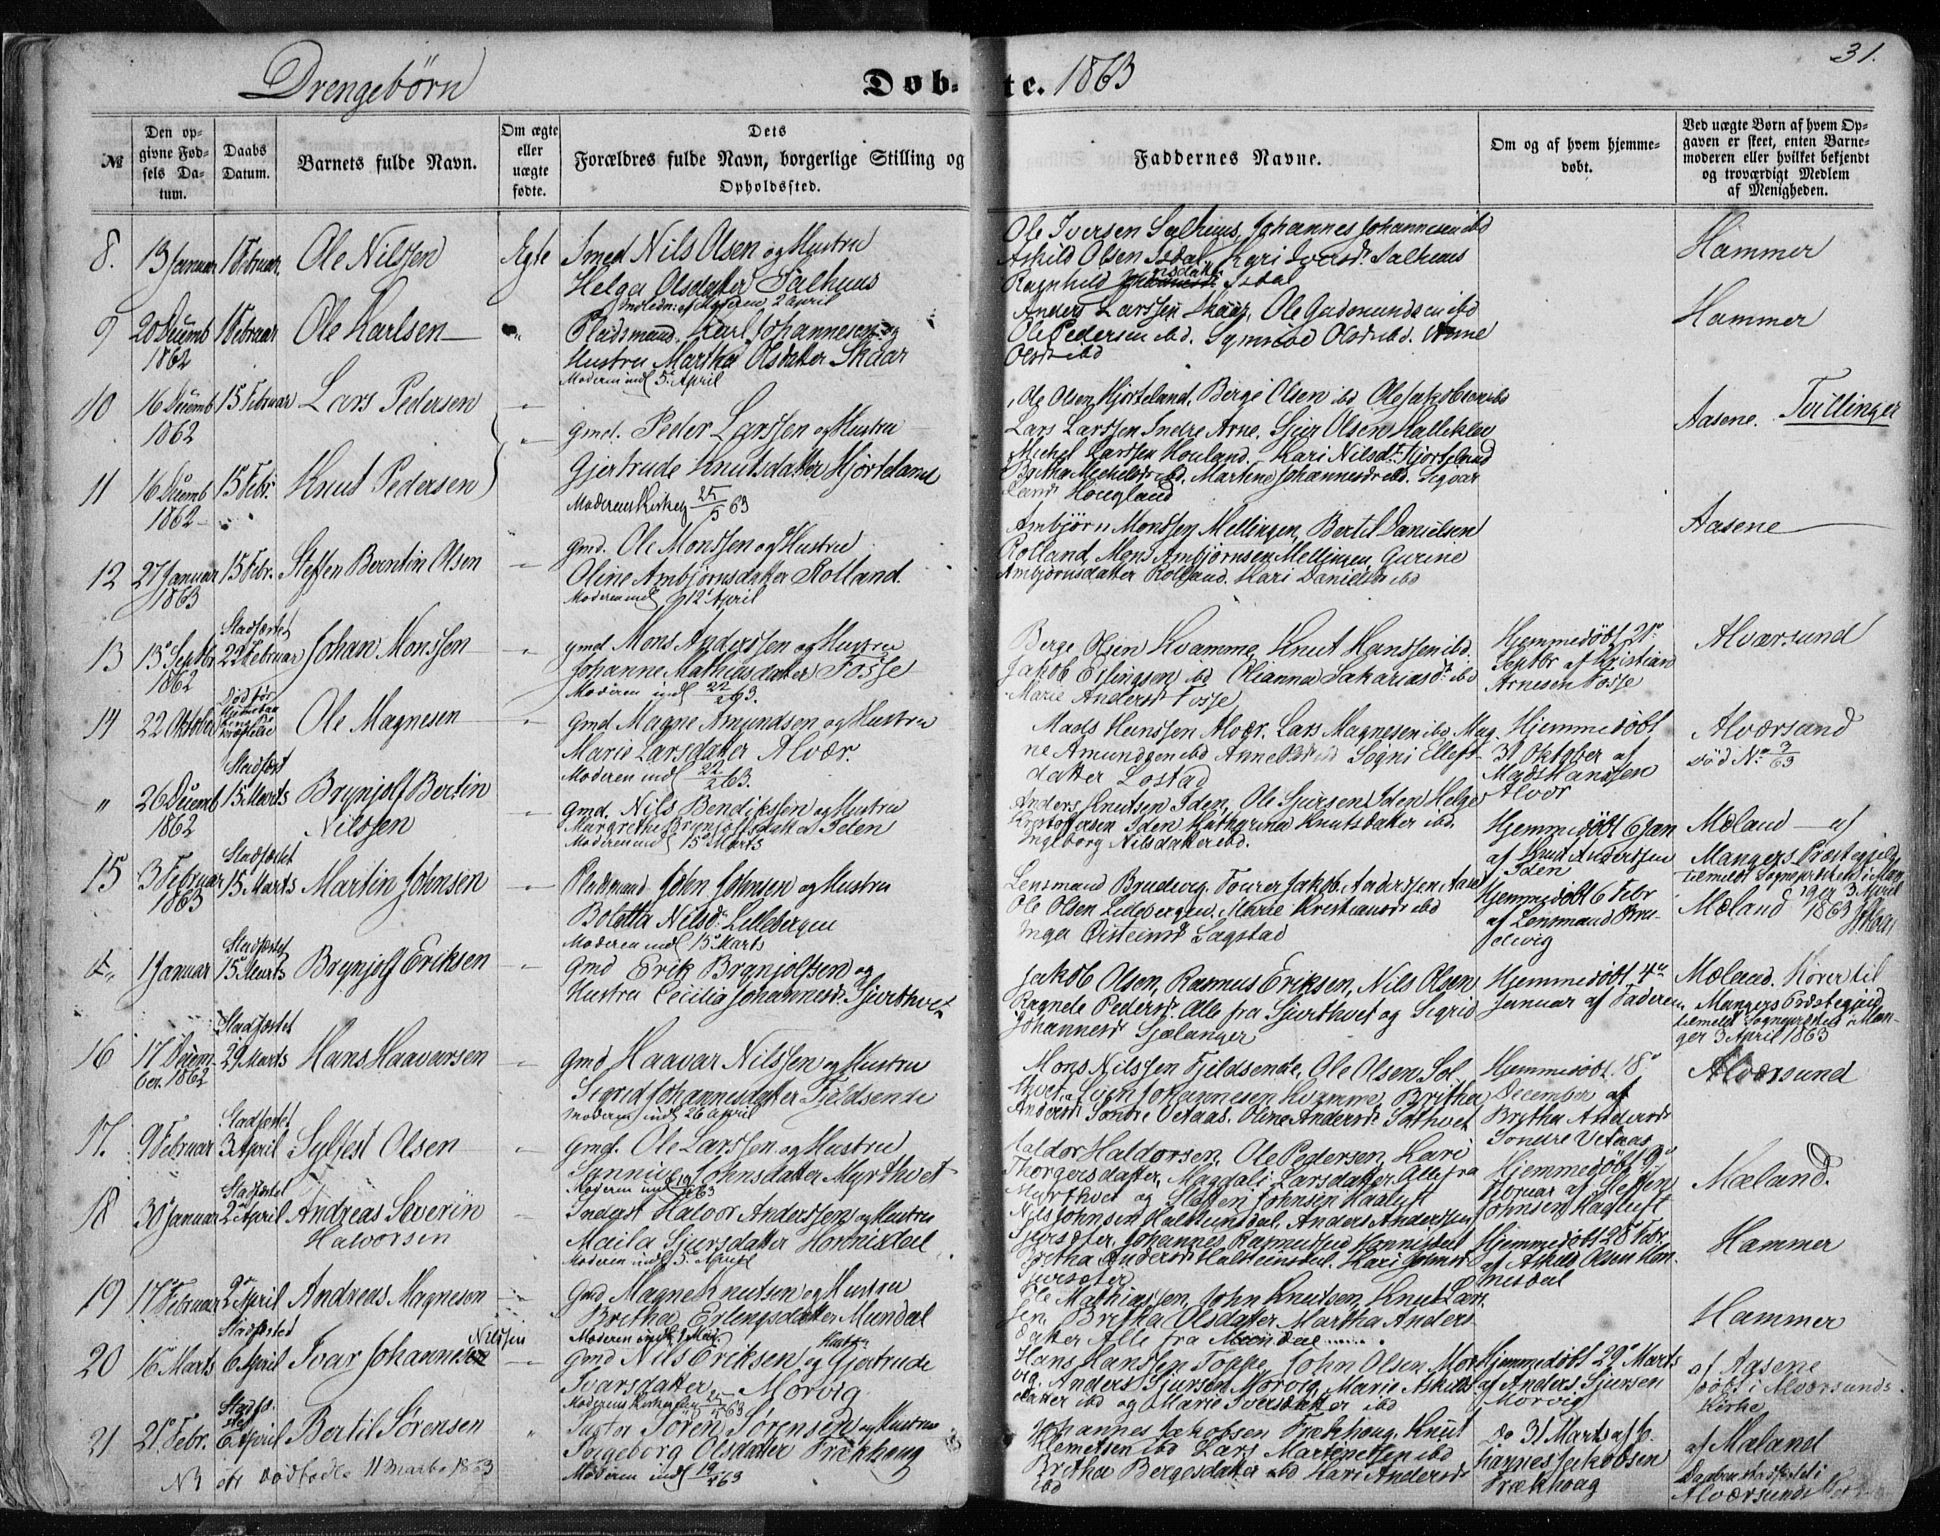 31.
Drengebørn
Døbte. 1863
№
Den opgivne Fødsels Datum.
Daabs Datum.
Barnets fulde Navn.
Om ægte eller uægte fødte.
Dets Forældres fulde Navn, borgerlige Stilling og Opholdssted.
Faddernes Navne.
Om og af hvem hjemmedøbt.
Ved uægte Børn af hvem Opgaven er skeet, enten Barnemoderen eller hvilket bekjendt og troværdigt Medlem af Menigheden.
8. 13 Januar 1 Februar. Ole Nilssen Ægte Smed Nils Olsen og Hustru
Helga Olsdatter Salhuus
Indledn: af Moderen 2 april
Ole Iversen Salhuus, Johannes Johannesen ibd
Askild Olsen Isdal, Kari Iversdr Salhuus
Ragnhild Isdal
Hammer
9 20 Decemb 1862 1 Februar Ole Karlsen Pladsmand, Karl Johannesen og
Hustru Martha Olsdatter Skaar
Moderen indl 5 April
Anders Larssen Skaar, Ole Gudmundsen ibd
Ole Pedersen ibd. Synneve Olsdr ibd. Anne
Olsdr ibd
Hammer
10 16 Decemb 1862 15 Februar Lars Pedersen
11 16 Decemb 1862 15 Febr. Knut Pedersen
Gmd. Peder Larssen og Hustru
Gjertrude Knutsdatter Hjorteland
Moderens Kirkeg 25/5 63
Ole Olsen Hjorteland, Berge Olsen ibd Ole Jakobsen ibd
Lars Larssen Indre Arne, Sjur Olsen Halleklev
Michel Larssen Houland. Kari Nilsdr Hjorteland
Brytha Michelsdr ibd. Martine Johannesdr ibd.
Hougland
Aasene. Tvillinger
12 27 Januar 1863 15 Febr. Steffen Berentin Olsen
Gmd. Ole Monssen og Hustru
Oline Ambjørnsdatter Rolland.
Moderen indl 12 April
Ambjørn Monssen Mellingen, Bertil Danielsen
Rolland, Mons Ambjørnsen Mellingen, Gurine
Ambjørnsdatter Rolland. Kari Danielsdr ibd
Aasene
13 13 Septbr 1862 Stadfæstet 22 Februar Johan Monssen
gmd Mons Anderssen og Hustru
Johanne Mathiasdatter Fosse
Moderen indl 22/2 63.
Berge Olsen Kvamme, Knut Hanssen ibd.
Jakob Erlingsen ibd Olianna Sakariasdr ibd
Marie Andersdr Fosse
Hjemmedøbt 21
Septbr af Kristian
Arnesen Fosse
Alværsund
14 22 Oktober Død før Ole Magnesen
Gmd. Magne Amundsen og Hustru
Marie Larsdatter Alvær.
Moderen indl 22/2 63.
Mads Hanssen Alvær. Lars Magnesen ibd Mag-
ne Amundsen ibd Anne Sogni Ellefs-
datter Lostad
Hjemmedøbt
31 Oktober af
Mads Hanssen
Alvær
Alværsund
død No 3/63
" 26 Decemb 1862 Stadfæst 15 Marts Brynjolf Bertin
Nilssen
Gmd. Nils Bendikssen og Hustru
Margrethe Brynjolfsdatter Iden
Moderen indl 15 Marts
Anders Knutsen Iden, Ole Sjursen Iden Helge
Kristoffersen Iden Kathrina Knutsdatter ibd.
Ingeborg Nilsdatter ibd.
Hjemmedøbt 6 Jan
af Knut Anderssen
Iden
Mæland af
Mangers Præstegjeld
tilmeldt Sognepræsten i Man-
ger 3 April
1863
15 3 Februar 1863 Stadfæstet 15 Marts Martin Johnsen
Pladsmand John Johnsen og Hustru
Boletta Nilsdr Lillebergen
Moderen indl 15 Marts
Lensmand Brudevig.
Ole Olsen Lillebergen. Marie Kristiansdr ibd
Inger Øisteinsdr Sagstad
Hjemmedøbt 6 Febr
af Lensmand Bru-
devig
Mæland
1 Januar Stadfæstet 15 Marts Brynjolf Eriksen
Gmd Erik Brynjolfsen og
Hustru Cecilia Johannesdr Sjurthvet
Jakob Olsen, Rasmus Eriksen, Nils Olsen
Ragnele Pedersdr Alle fra Sjurthvet og Sigrid
Johannesdr Sjælanger
Hjemmedøbt 4
Januar af Faderen
Mæland. Hører til
Mangers Præstegjeld
tilmeldt Sognepræsten i Man-
ger 3 April 1863
16 17 Decem-
ber. 1862 Stadfæstet 29 Marts Hans Haavarsen
Gmd Haavar Nilssen og Hustru
Sigrid Johannesdatter Fjeldsende
Moderen indl 26 april
Mons Nilssen Fjeldsende, Ole Olsen Sol-
thvet, Johannesen Kvamme, Britha
Andersdr Søndre Vetaas. Oline Andersdr Solthvet
Hjemmedøbt 18
December af
Brytha Andersdr
Søndre Vetaas
Alværsund
17. 9 Februar Stadfæstet 3 April Syllest Olsen
Gmd. Ole Larssen og Hustru
Synnive Johnsdatter Myrthvet
Haldor Haldorsen, Ole Pedersen, Kari
Thorgersdatter, Magdali Larsdatter Alle fra
Myrthvet og Steffen Johnsen Haaluft
Hjemmedøbt 9
Februar af Steffen
Johnsen Hagluft
Mæland.
18 30 Januar Stadfæstet 2 April Andreas Severin
Halvorsen
Inderst Halvor Anderssen og Hustru
Maila Sjursdatter Hornisdal
Moderen indl 5 April
Nils Johnsen Halkeinsdal, Anders Anderssen
Hjemmedøbt 28 Febr.
af Askild Olsen Hon-
nisdal
Hammer
19 17 Februar 2 April Andreas Magneson
Gmd Magne Knutsen og Hustru
Britha Erlingsdatter Mundal
Moderen indl 1 Mai
Ole Mathiassen, John Knutsen, Knut Lars-
sen, Britha Olsdatter Martha Anders-
datter Alle fra Mundal
Hammer
20 16 Marts Stadfæsted 6 April Ivar Johannesen Nilssen
Gmd Nils Eriksen og Hustru Gjertrude
Ivarsdatter Morvig
Moderens Kirkegang 25/5 63
Hans Hanssen Toppe, John Olsen Mor-
vig, Anders Sjursen Morvig Marie Askilds-
datter ibd og Marie Iversdatter ibd
Hjemmedøbt 29 Marts
af Anders Sjursen
Morvig
af Aasene
døbt i Alværsunds
Kirke
21 21 Febr. Stadfæ-
stet 6 April Bertil Sørensen
Søren Sørensen og Hustru
Ingeborg Olsdatter Frækhoug
Moderen indl 19/4 63
Johannes Jakobsen Frækhoug, Knut
Klemetsen ibd Lars Martinessen ibd
Britha Bergesdatter ibd Kari Andersdr
ibd
do 31 Marts af Jo-
hannes Jakobsen
Frækhoug
af Mæland
Daaben stadfæstet i
Alværsunds
dødfødt 11 Marts 1863